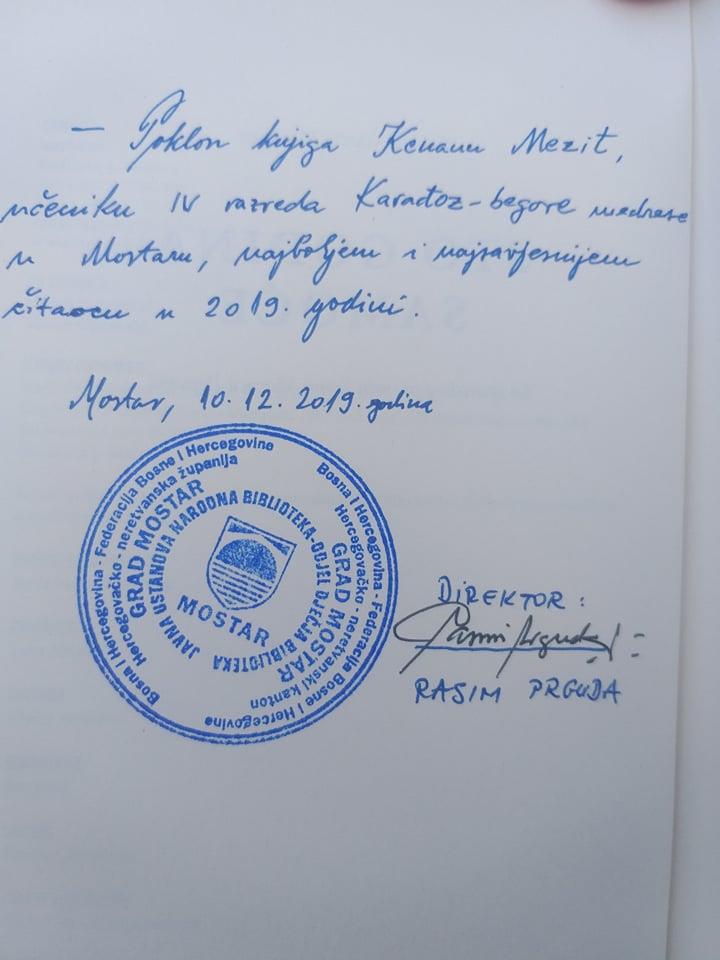 — Poklon knjiga Kenanu Mezit,
učeniku IV razreda Karađoz-begove medrese
u Mostaru, najboljem i najsavjesnijem
čitaocu u 2019. godini.
Mostar, 10.12.2019. godina
Bosna i Hercegovina - Federacija Bosne i Hercegovine
Hercegovačko - neretvanska županija
GRAD MOSTAR
Bosna i Hercegovina - Federacija Bosne i Hercegovine
Hercegovačko - neretvanski kanton
GRAD MOSTAR
JAVNA USTANOVA NARODNA BIBLIOTEKA-ODJEL DJEČJA BIBLIOTEKA
MOSTAR
DIREKTOR:
RASIM PRGUDA